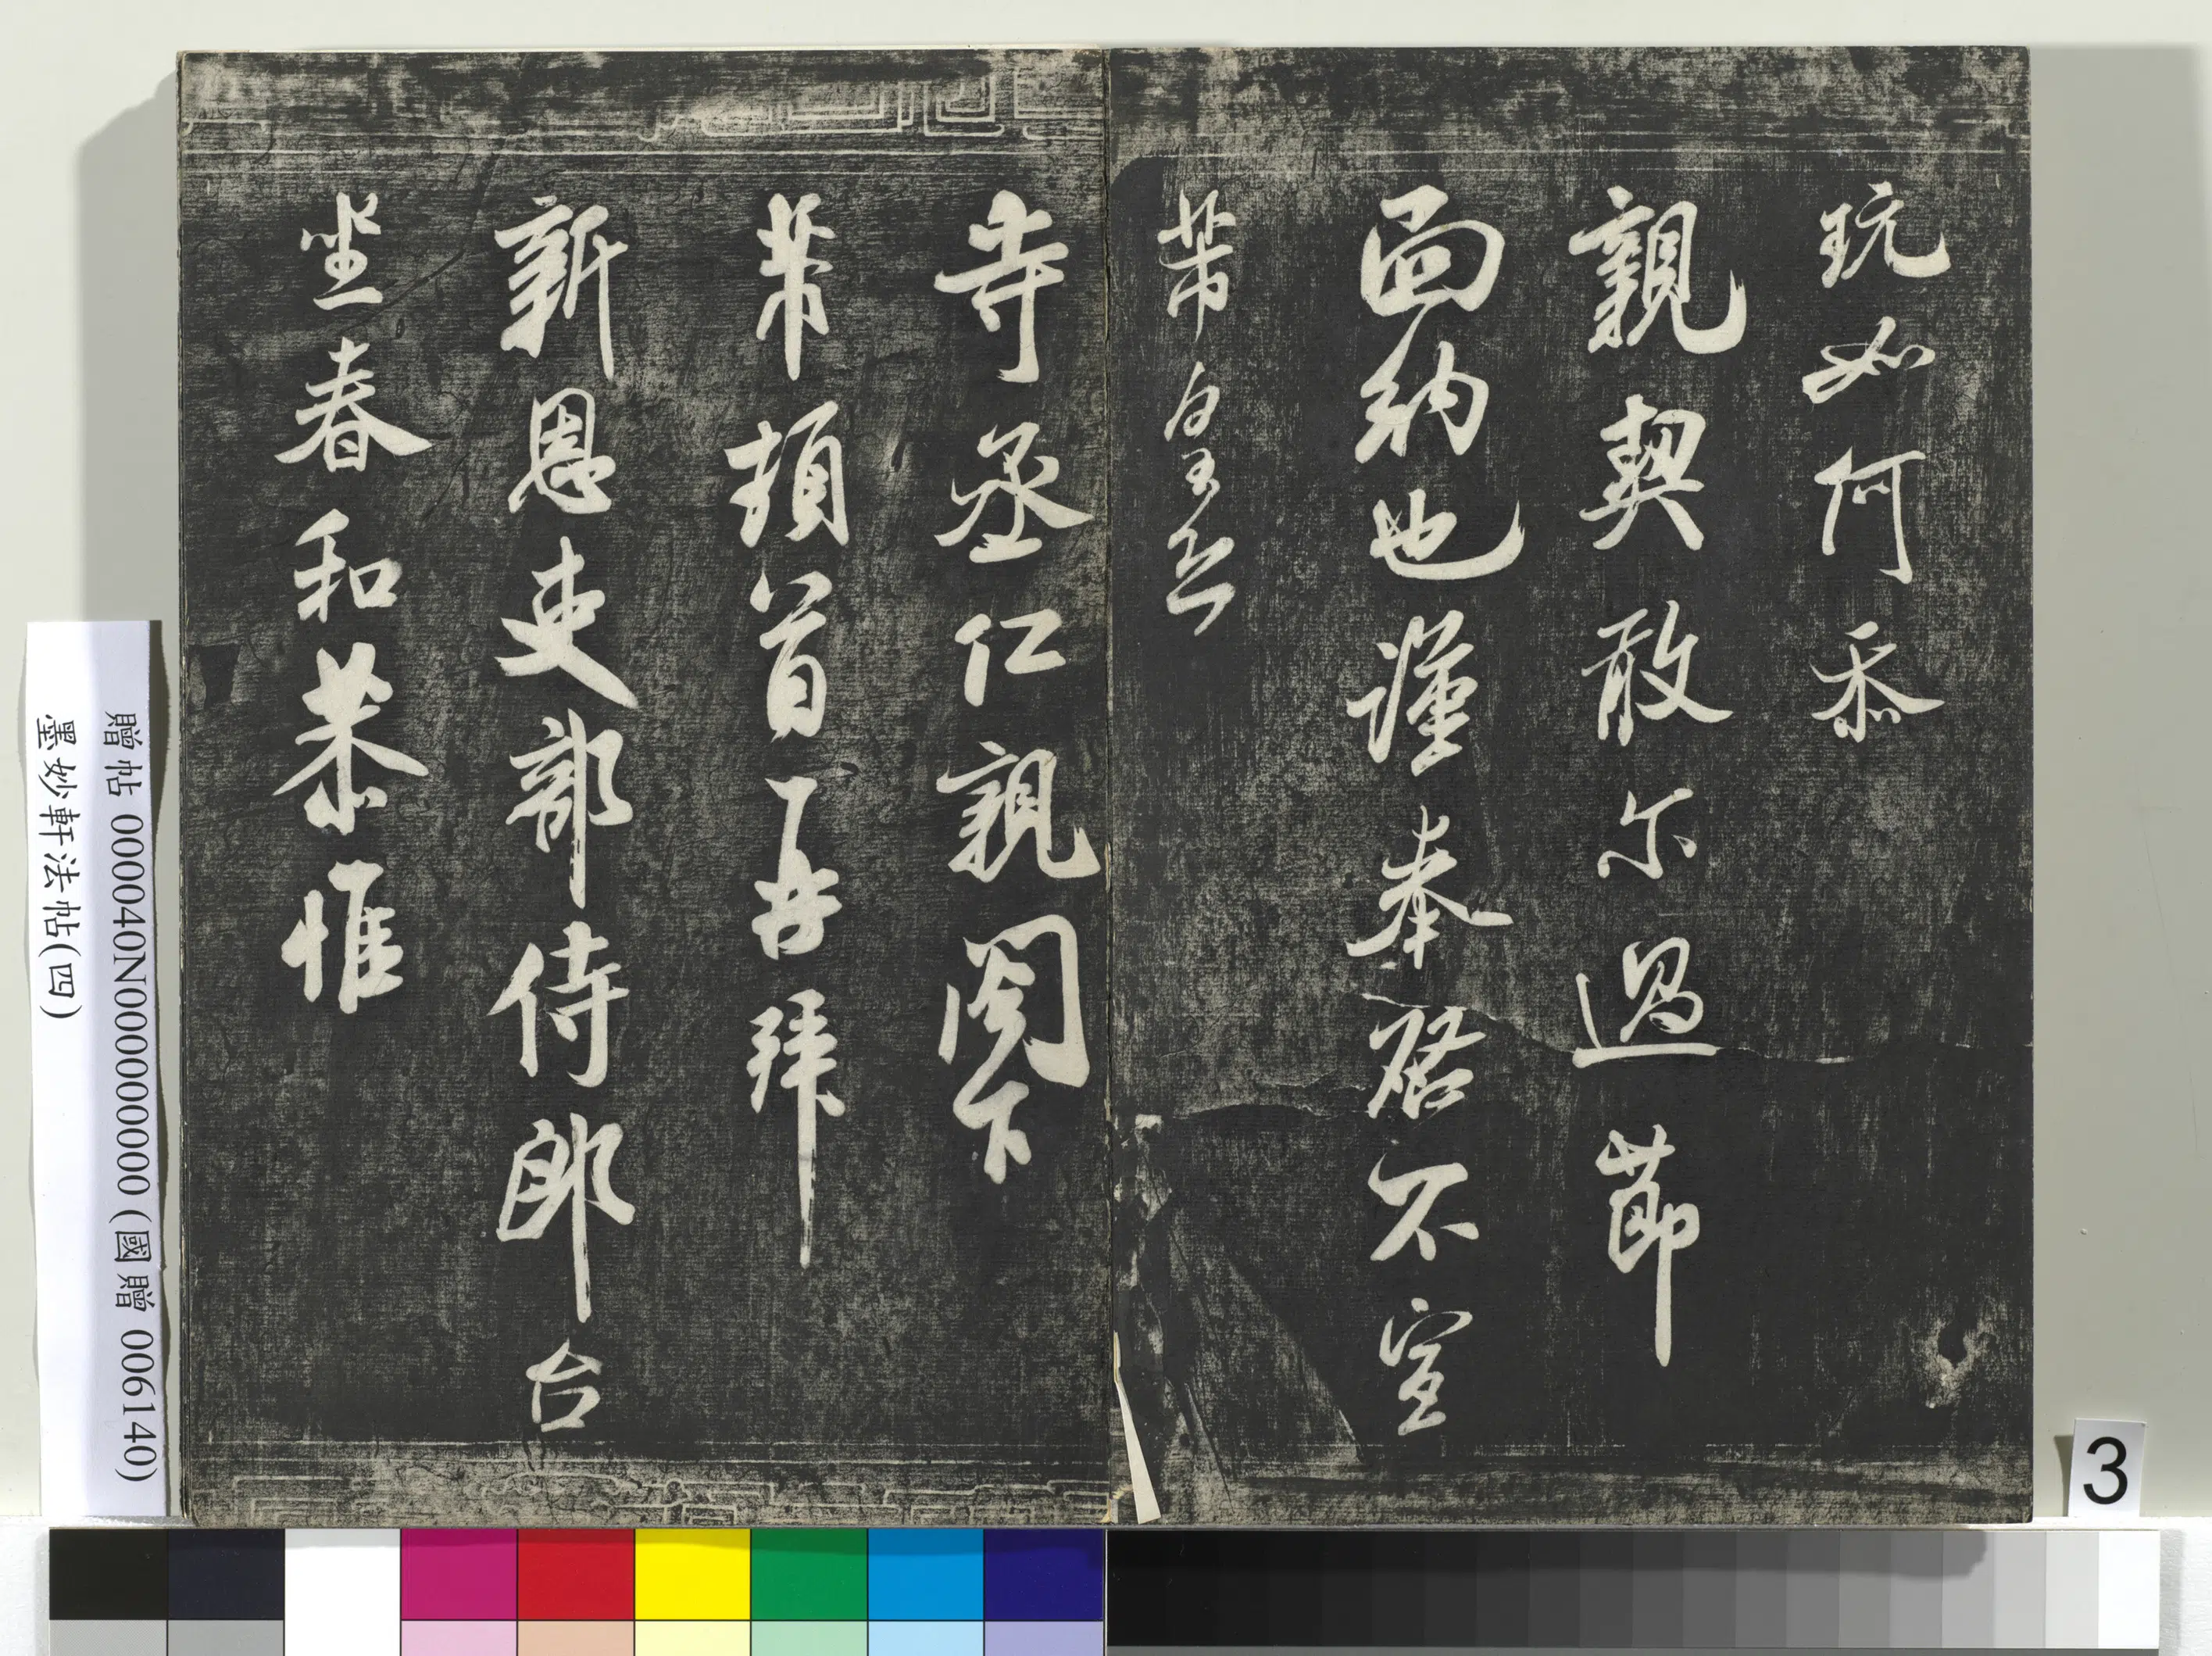 玩如何忝
親契敢尔過節
面納也謹奉啓不宣
芾皇恐
寺丞仁親閣下
芾頓首再拜
新恩吏部侍郎台
坐春和恭惟
贈帖 000040N000000000 (國贈 006140)
墨妙軒法帖(四)
3